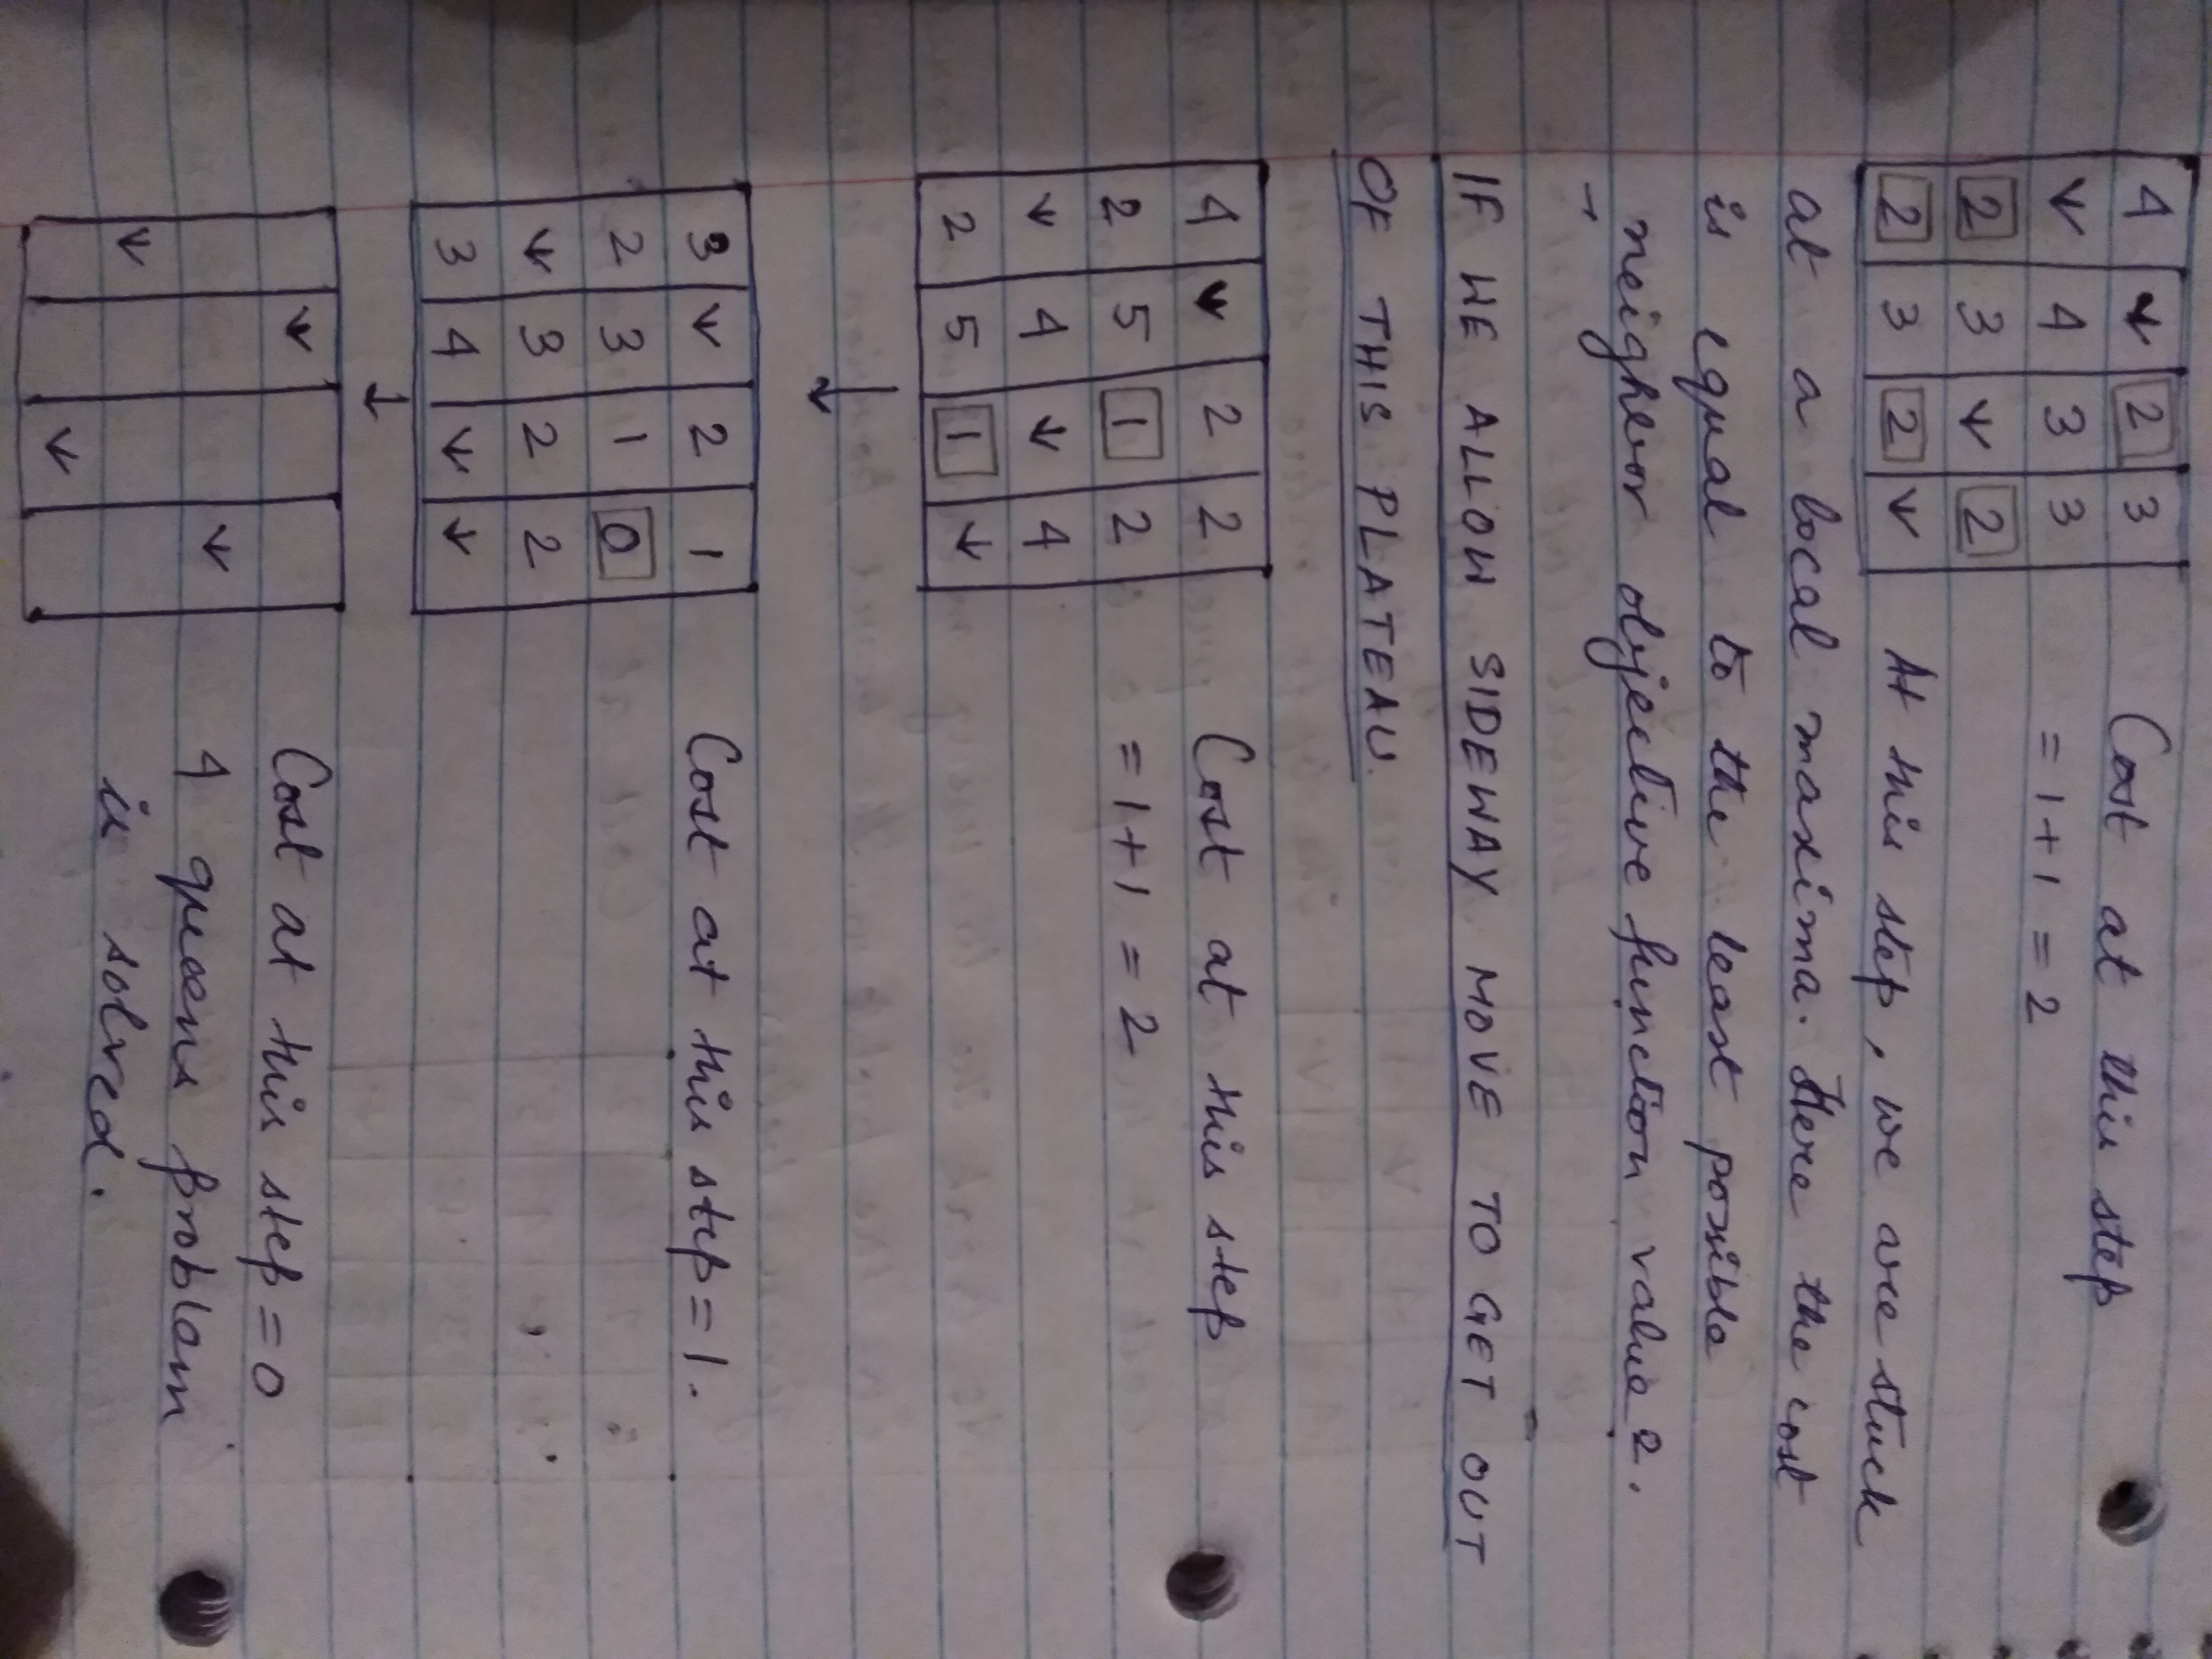 4 ↓ 2 3 Cost at this step
↓ 4 3 3 = 1+1 = 2
2 3 ↓ 2
2 3 2 ↓ At this step, we are stuck
at a local maxima. Here the cost
is equal to the least possible
neighbor objective function value 2.
→
IF WE ALLOW SIDEWAY MOVE TO GET OUT
OF THIS PLATEAU.
4 ↓ 2 2 Cost at this step
2 5 1 2 = 1+1 = 2
↓ 4 ↓ 4
2 5 1 ↓
↓
3 ↓ 2 1 Cost at this step = 1.
2 3 1 0
↓ 3 2 2
3 4 ↓ ↓
↓
↓ Cost at this step = 0
↓ 4 queens problem
↓ is solved.
↓